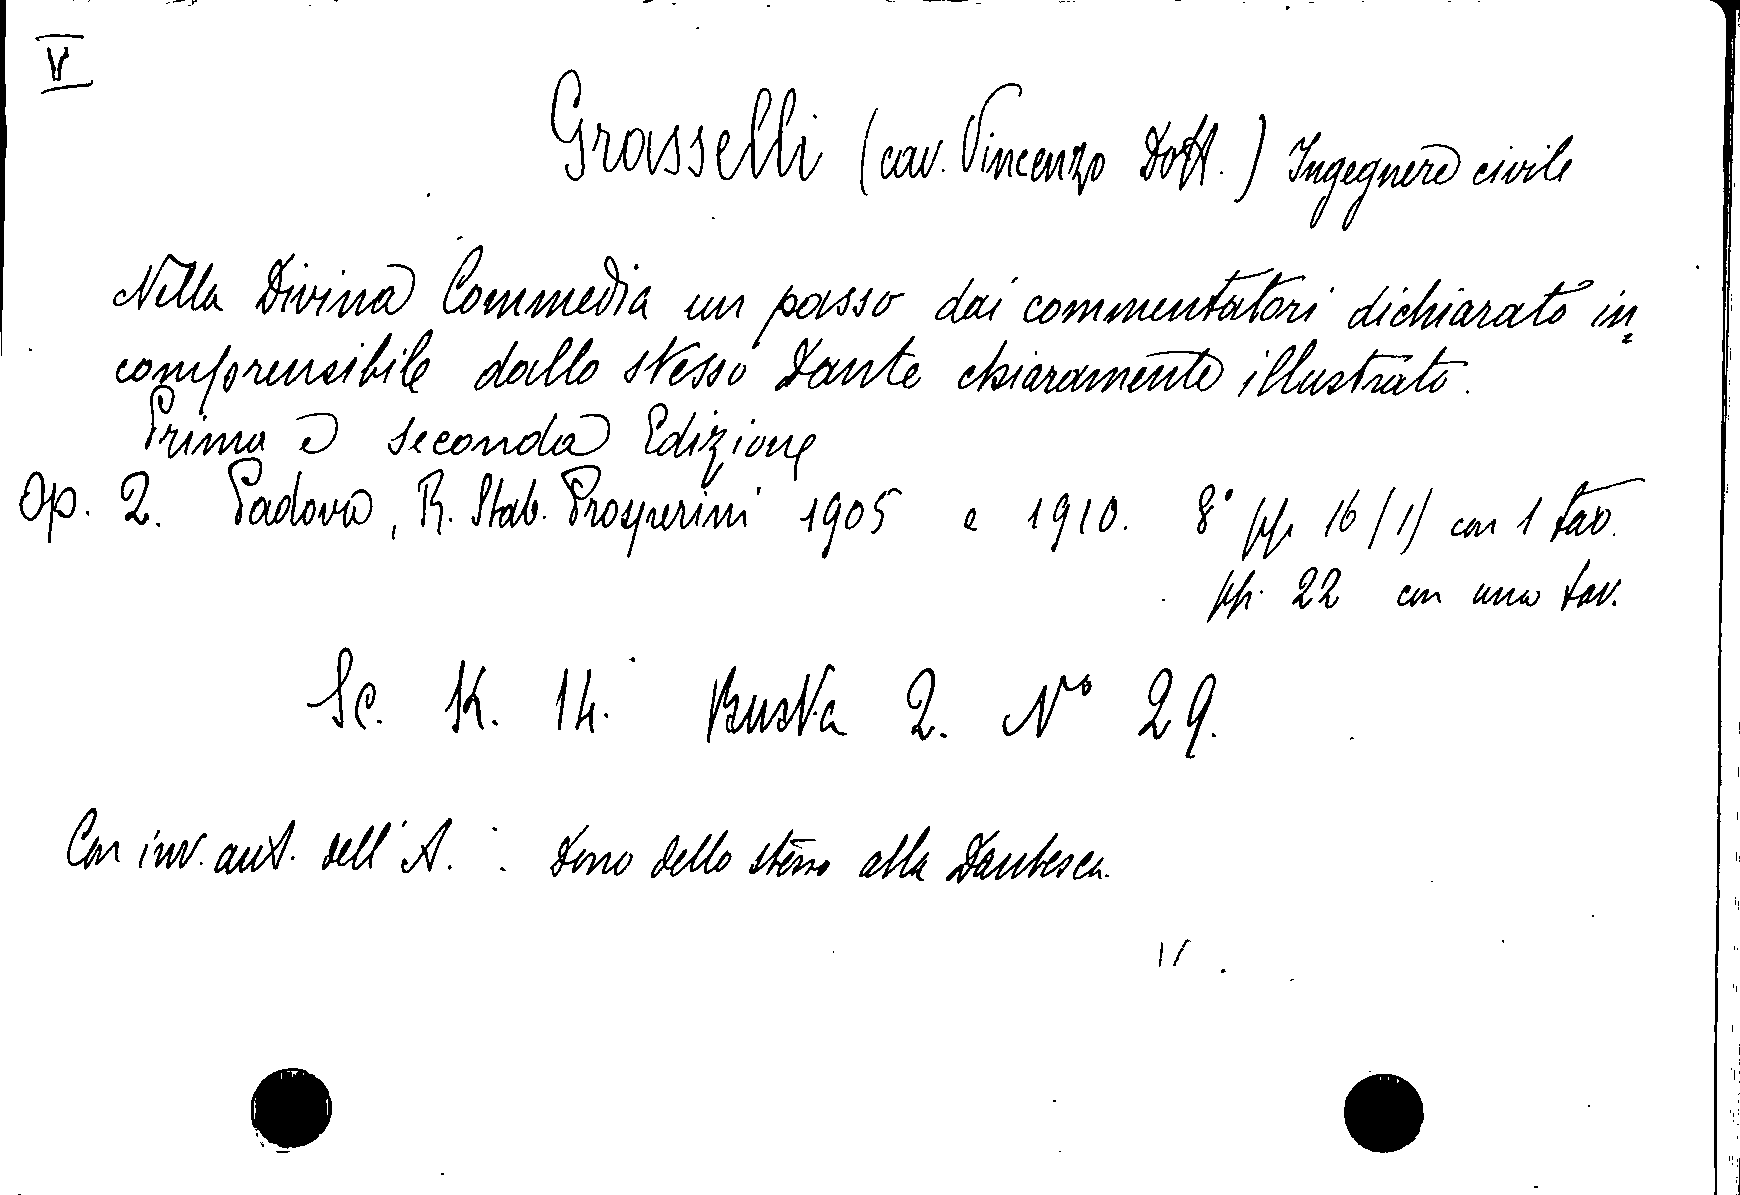 V
Grasselli (cav. Vincenzo Dott.) Ingegnere civile
Nella Divina Commedia un passo dai commentatori dichiarato in=
comprensibile dallo stesso Dante chiaramente illustrato.
Prima e seconda Edizione
Op. 2. Padova, R. Stab. Prosperini 1905 e 1910. 8° pp. 16 (1) con 1 tav.
pp. 22 con una tav.
Sc. K. 14. Busta 2. N° 29.
Con inv. aut. dell'A. : Dono dello stesso alla Dantesca.